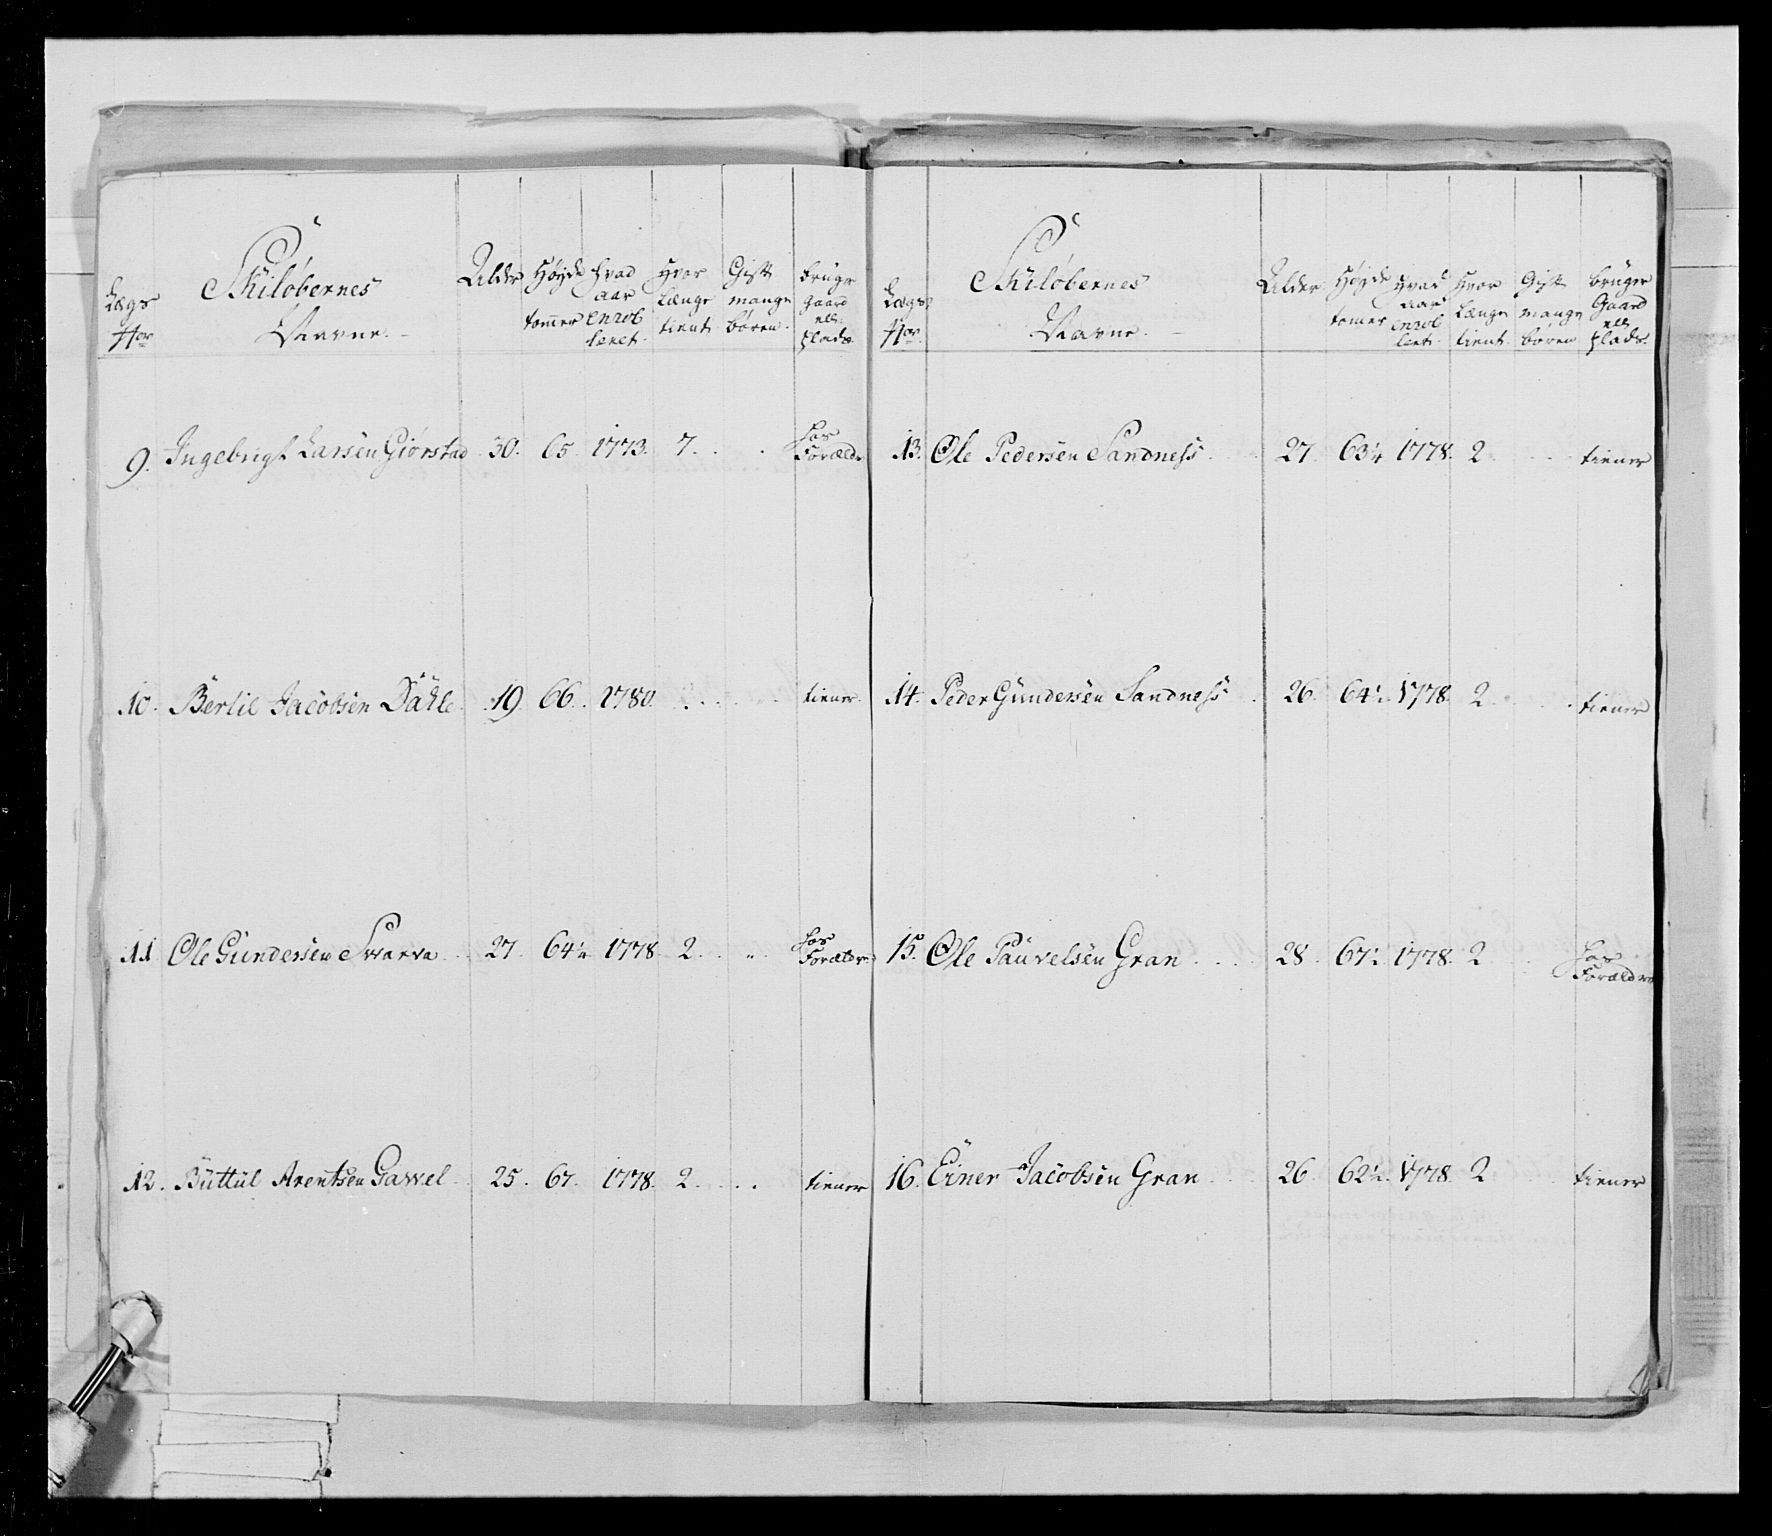 Lægs No: | Skiløbernes Navne. | Alder | Høyde tomer | hvad aar enrolleret. | Hvor længe tient | Gift mange børen. | bruger Gaard ell: Plads.
9. Ingebrigt Larsen Giørstad 30. 65. 1773. 7. . . hos Forældr
10. Bertil Jacobsen Dahle. 19. 66. 1780. . . . . tiener.
11. Ole Gundersen Swarva 27. 64½ 1778. 2. . „ . hos Forældre
12. Buttul Arentsen Gawel. 25. 67. 1778. 2. . . . tiener
Lægs No: | Skiløbernes Navne. | Alder | Høyde tomer | Hvad aar enrolleret. | hvor længe tient. | Gift mange børen | bruger Gaard ell: Plads.
13. Ole Pedersen Sandness. 27. 63¼ 1778. 2. . . tiener
14. Peder Gundersen Sandness. 26. 64½. 1778. 2. . . tiener
15. Ole Pauvelsen Gran . . 28. 67½. 1778. 2 . hos Forældre
16. Einer Jacobsen Gran . . 26. 62½. 1778. 2 . tiener